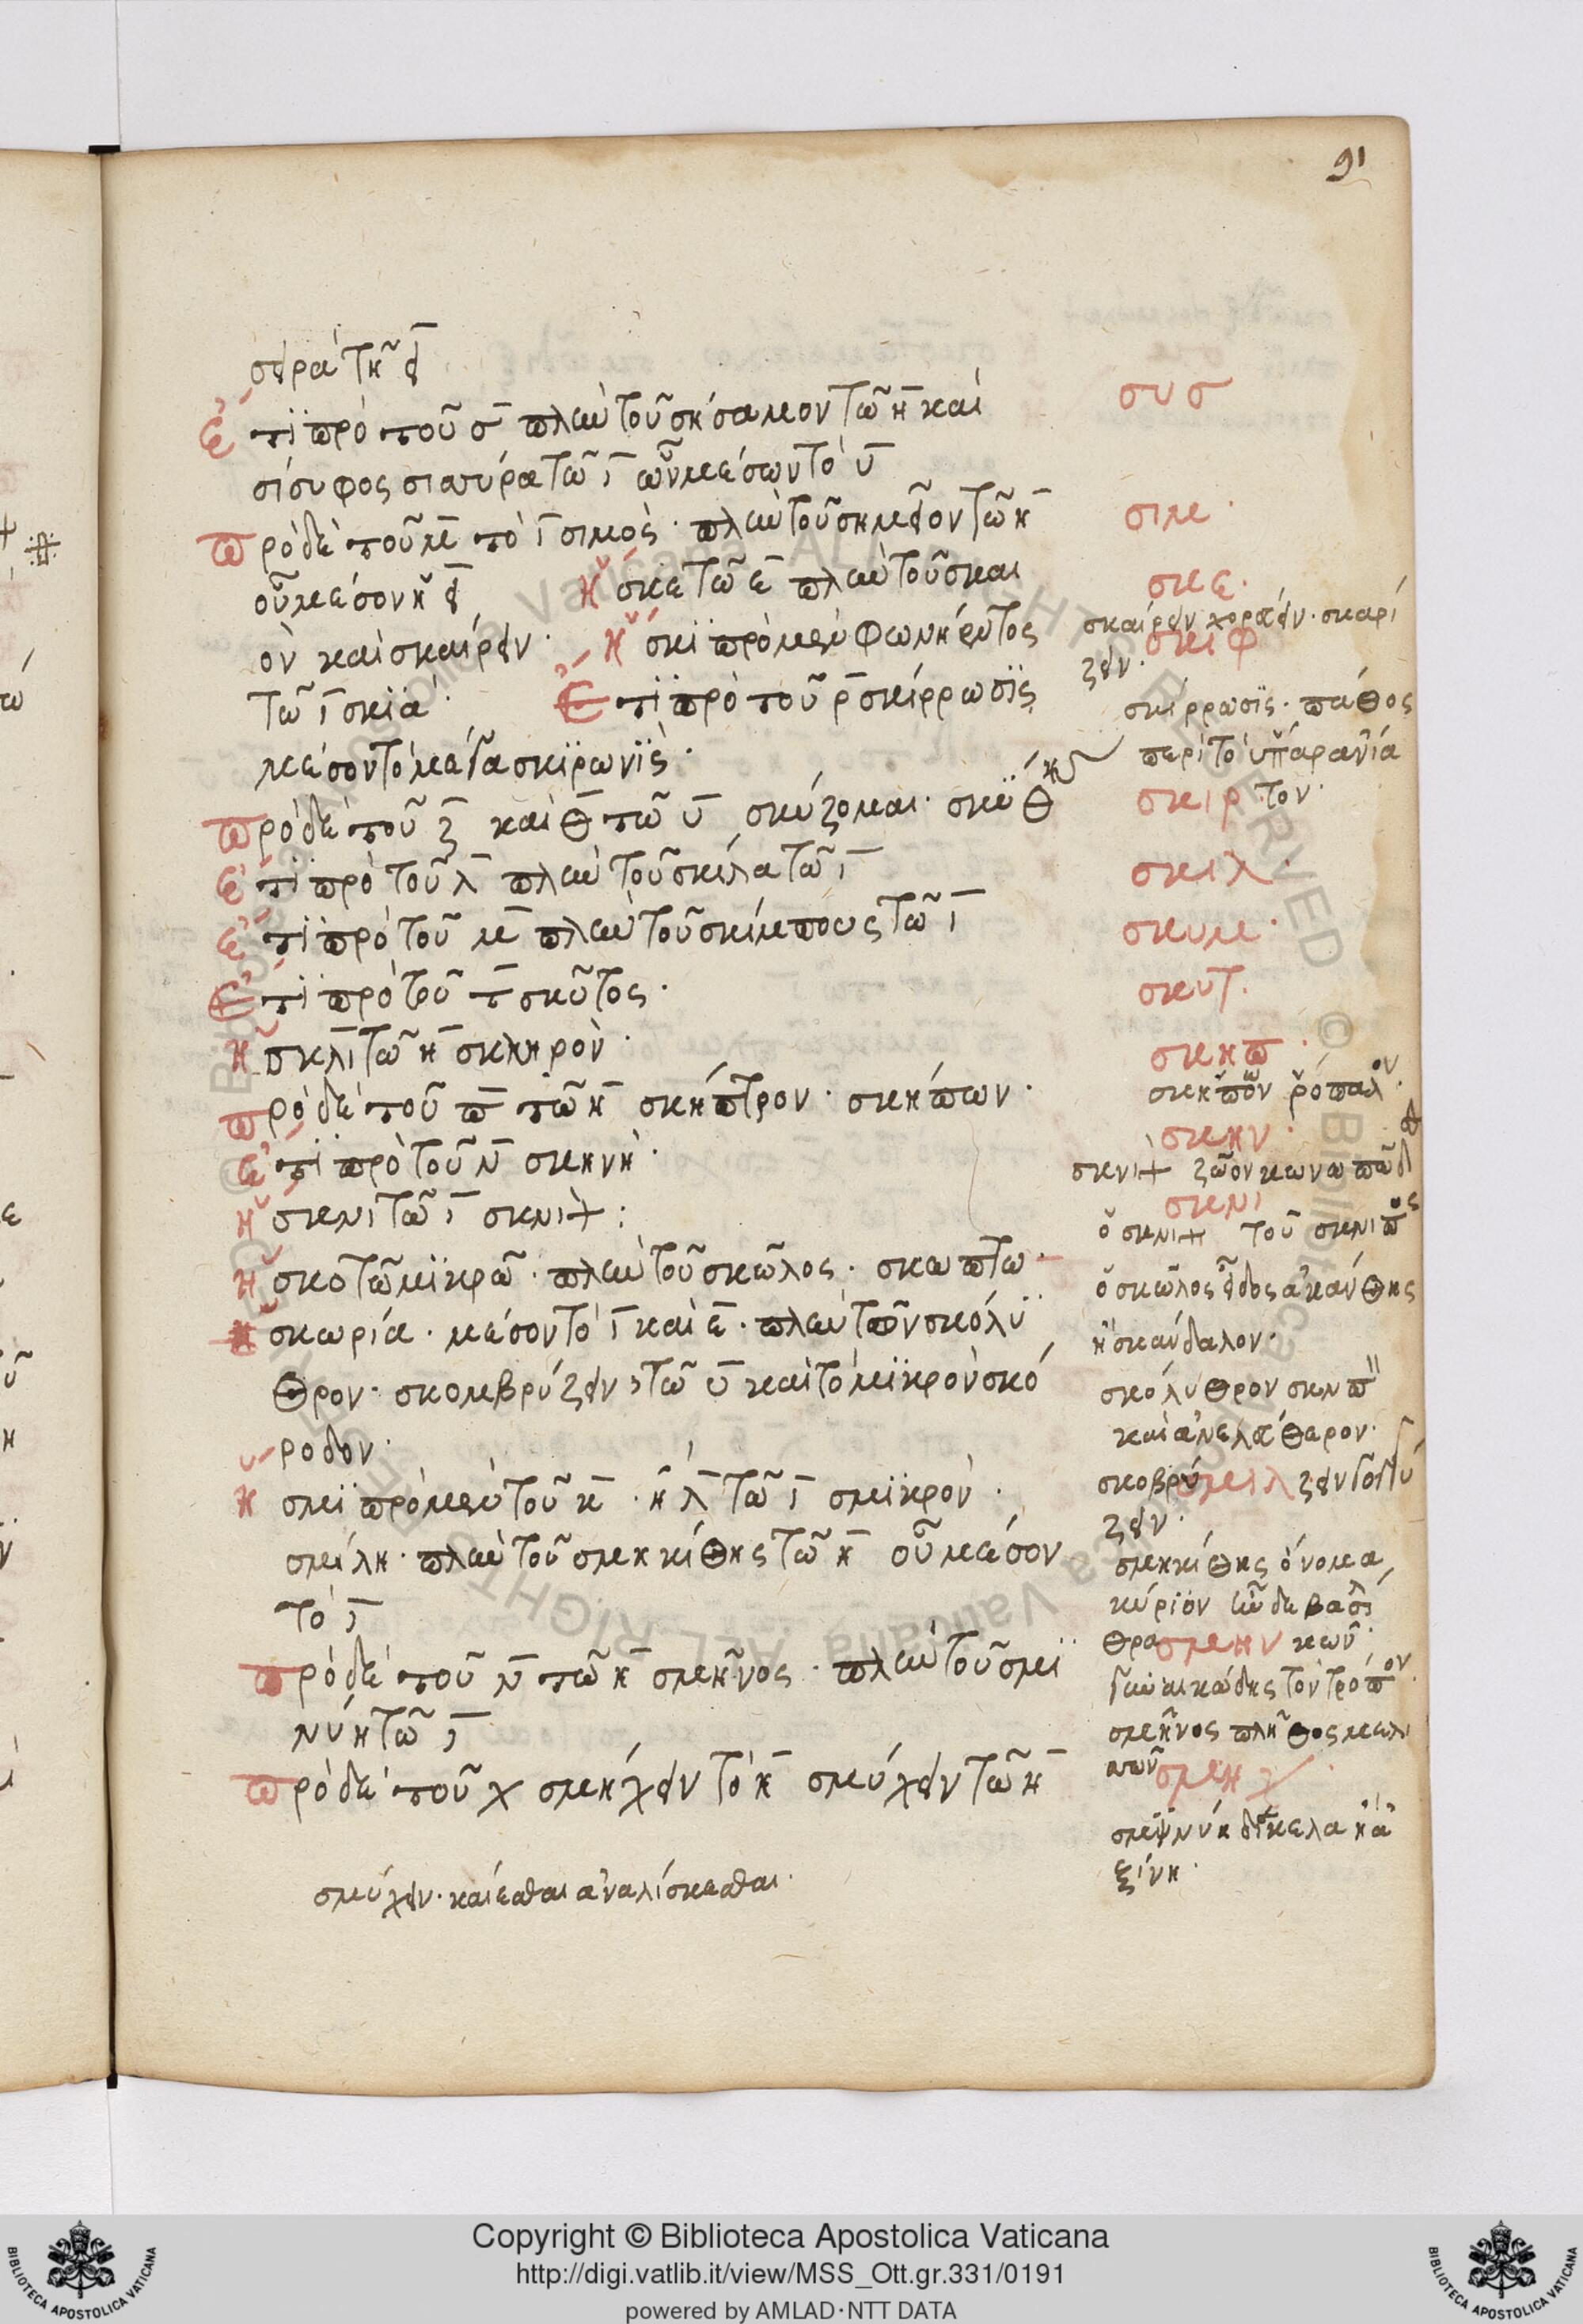 91
σειρὰ τῇ ει
Ἐπὶ πρὸ τοῦ σ πλὴν τοῦ σήσαμον τῷ η καὶ
σίσυφος σισύρα τῷ ι ὧν μέσων τὸ υ
πρὸ δὲ τοῦ μ τὸ ι σιμός· πλὴν τοῦ σημεῖον τῷ η
οὗ μέσον ἡ ει Ἡ σκε τῷ ε πλὴν τοῦ σκαι
ὸν καὶ σκαίρειν· Ἡ σκι πρὸ μὲν φωνήεντος
τῷ ι σκιά· Ἐπὶ πρὸ τοῦ ρ σκίρρωσις
μέσον τὸ μετὰ σκιρωνίς·
πρὸ δὲ τοῦ ζ καὶ θ τῷ υ σκύζομαι· σκύθης
ἐπὶ πρὸ τοῦ λ πλὴν τοῦ σκίλα τῷ ι
ἐπὶ πρὸ τοῦ μ πλὴν τοῦ σκίμπους τῷ ι
Ἐπὶ πρὸ τοῦ τ σκῦτος·
Ἡ σκλι τῷ η σκληρόν·
πρὸ δὲ τοῦ π τῷ η σκῆπτρον· σκήπων·
Ἐπὶ πρὸ τοῦ ν σκηνή·
Ἡ σκνι τῷ ι σκνιψ:
Ἡ σκο τῷ μικρῷ· πλὴν τοῦ σκῶλος· σκώπτω
Ἡ σκωρία· μέσον τὸ ι καὶ ε· πλὴν τῶν σκολύ
θρον· σκομβρύζειν τῷ υ καὶ τὸ μικρὸν σκό
ροδον·
Ἡ σμι πρὸ μὲν τοῦ κ· ἢ λ τῷ ι σμικρόν·
σμίλη· πλὴν τοῦ σμηκίθης τῷ η οὗ μέσον
τὸ ι
πρὸ δὲ τοῦ ν τῷ η σμῆνος· πλὴν τοῦ σμι
νύη τῷ ι
πρὸ δὲ τοῦ χ σμήχειν τὸ η σμύχειν τῷ η
σμύχειν· καίεσθαι ἀναλίσκεσθαι·
συσ
σιμ·
σκε·
σκαίρειν χορεύειν· σκαρί
σκιφ
ζειν·
σκίρρωσις· πάθος
περὶ τὸ
σκιρ τον·
σκιλ·
σκυμ·
σκυτ·
σκηπ·
σκήπων ῥόπαλον·
σκην·
σκνιψ ζῷον κωνωπῶδ
σκνι
ὁ σκνιψ τοῦ σκνιπὸς
ὁ σκῶλος εἶδος ἀκάνθης
ἢ σκάνδαλον·
σκολύθρον
καὶ
σκοβρύ σμιλ ζειν
ζειν·
σμηκίθης ὄνομα
κύριον
σμην
τὸν τρόπον·
σμῆνος πλῆθος μελι
σμηχ
σμινύη δίκελα ἢ ἀ
ξίνη·
Copyright © Biblioteca Apostolica Vaticana
http://digi.vatlib.it/view/MSS_Ott.gr.331/0191
powered by AMLAD·NTT DATA
BIBLIOTECA APOSTOLICA VATICANA
BIBLIOTECA APOSTOLICA VATICANA